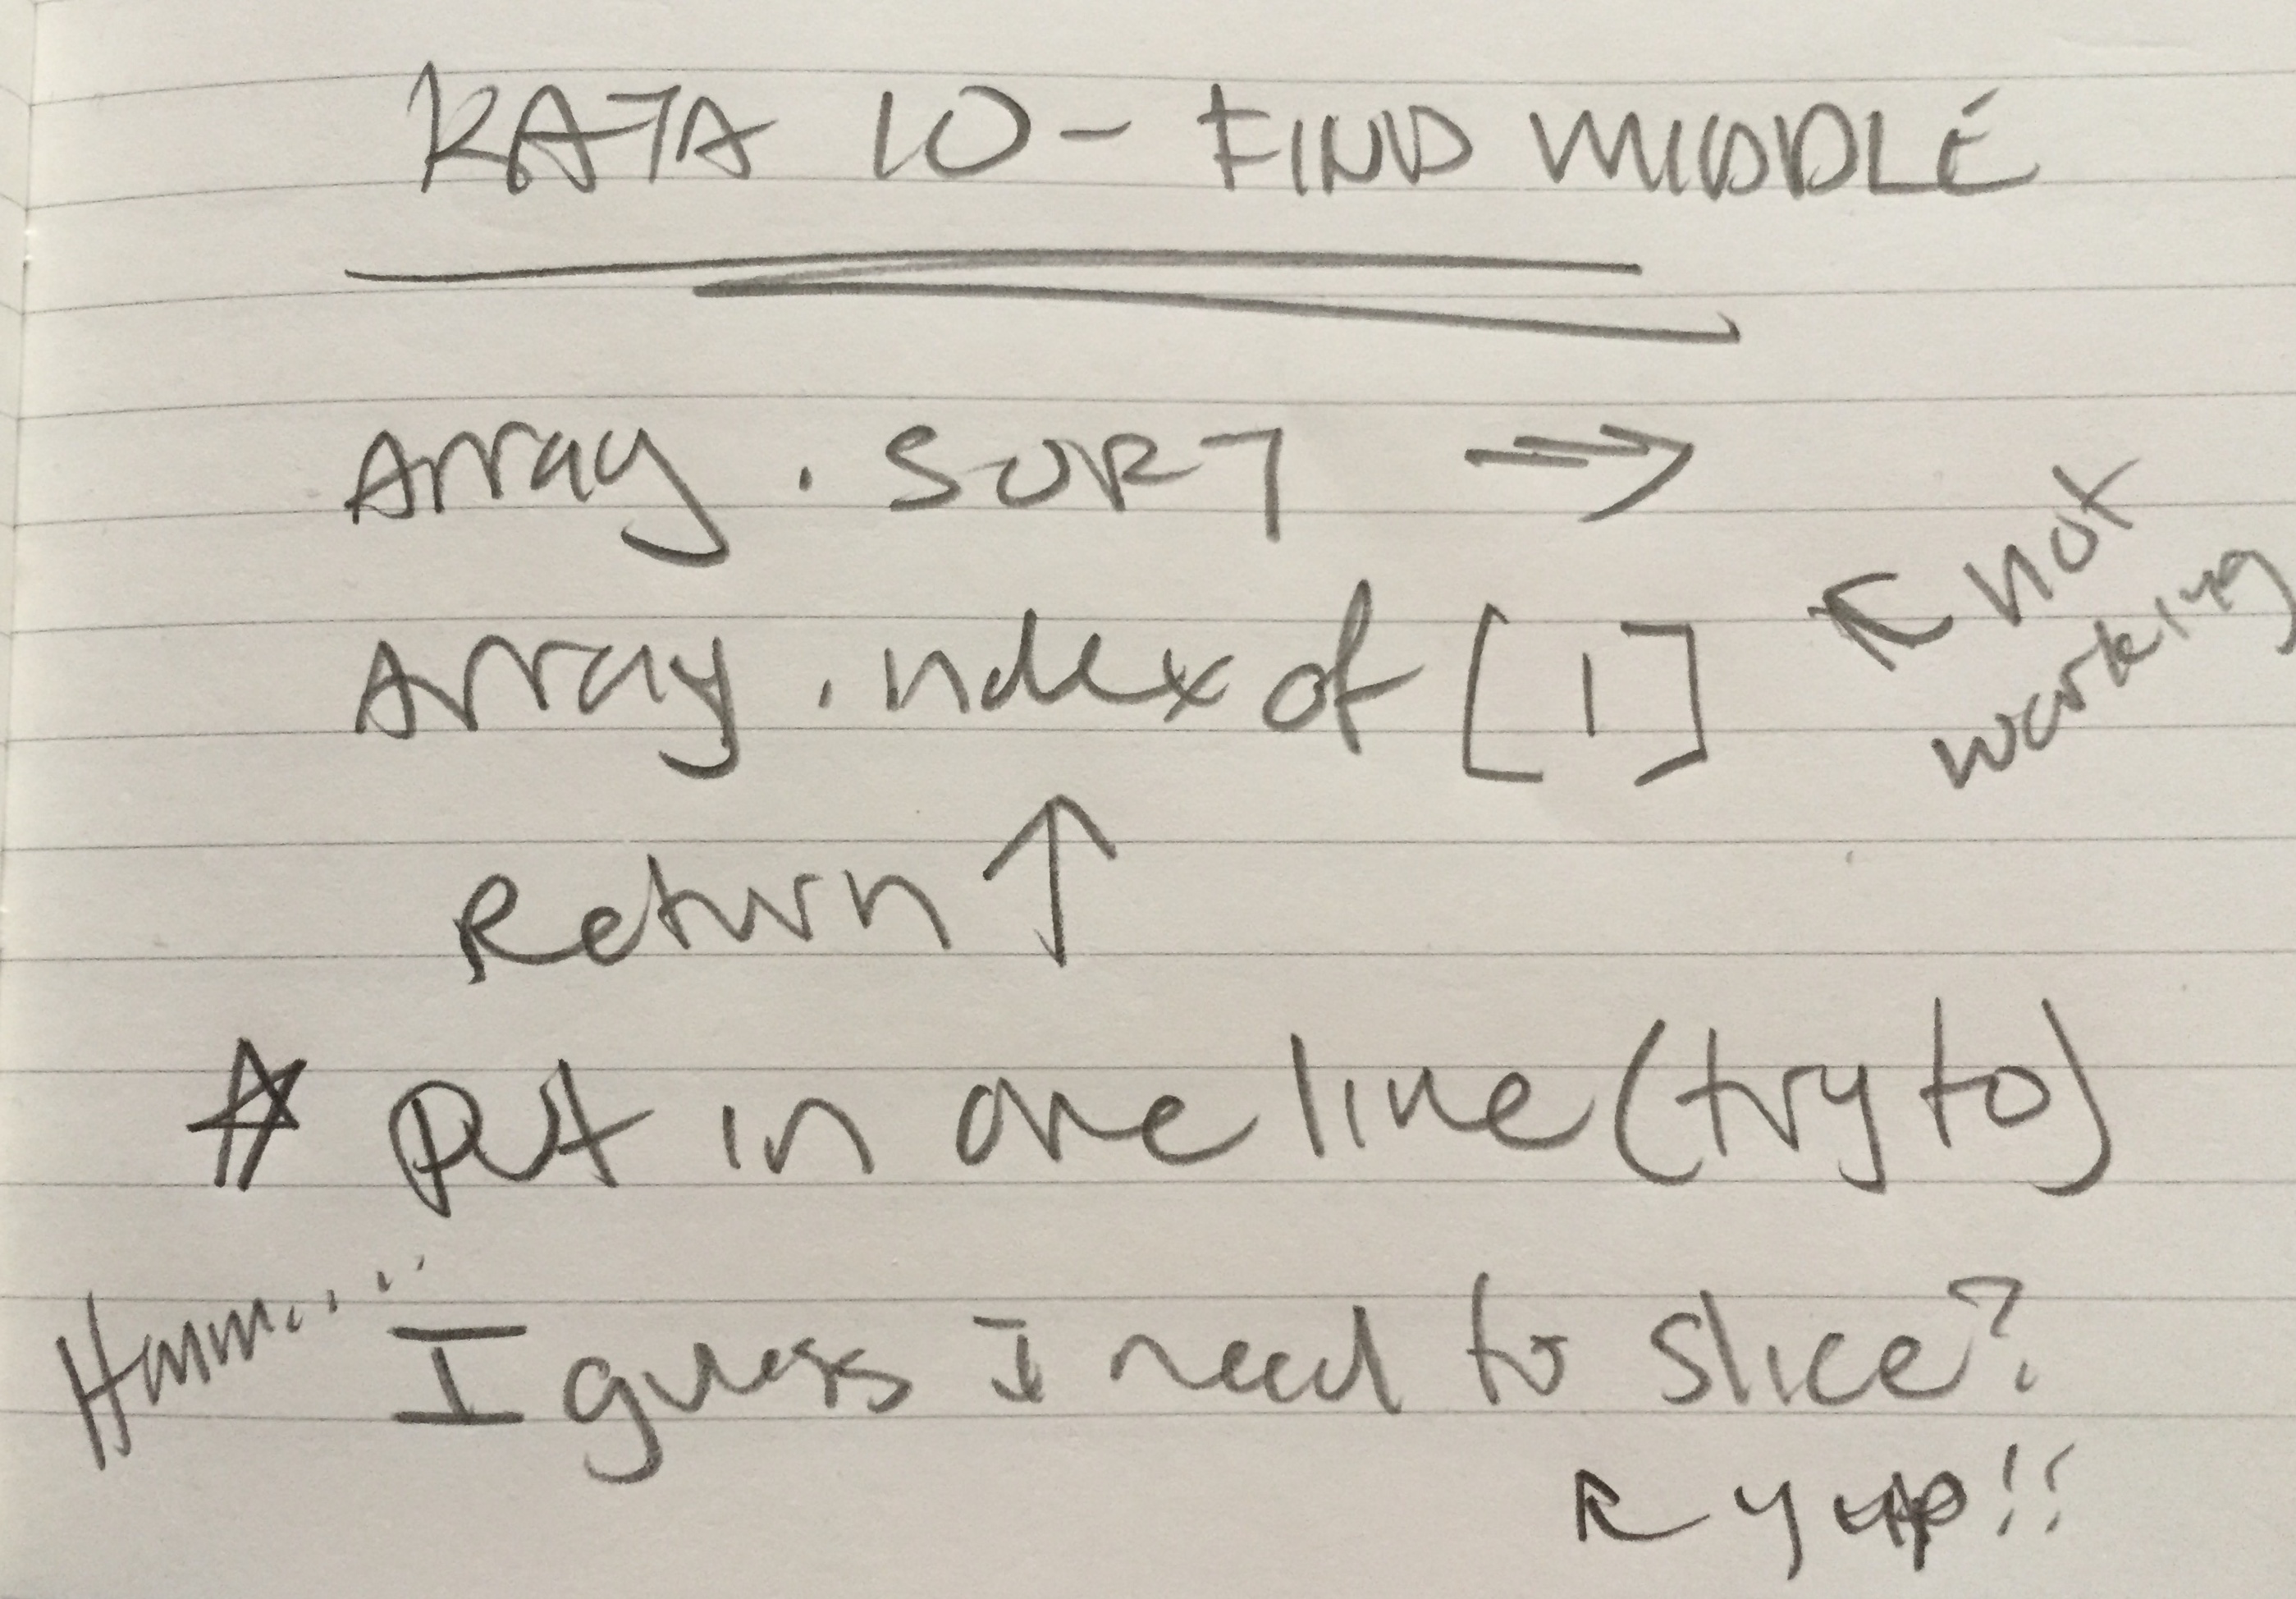 KATA 10 - FIND MIDDLE
Array . SORT ⇒
Array . ndex of [1] ↖ not working
Return ↑
☆ Put in one line (try to)
Hmm..... I guess I need to slice?
↖ yup!!